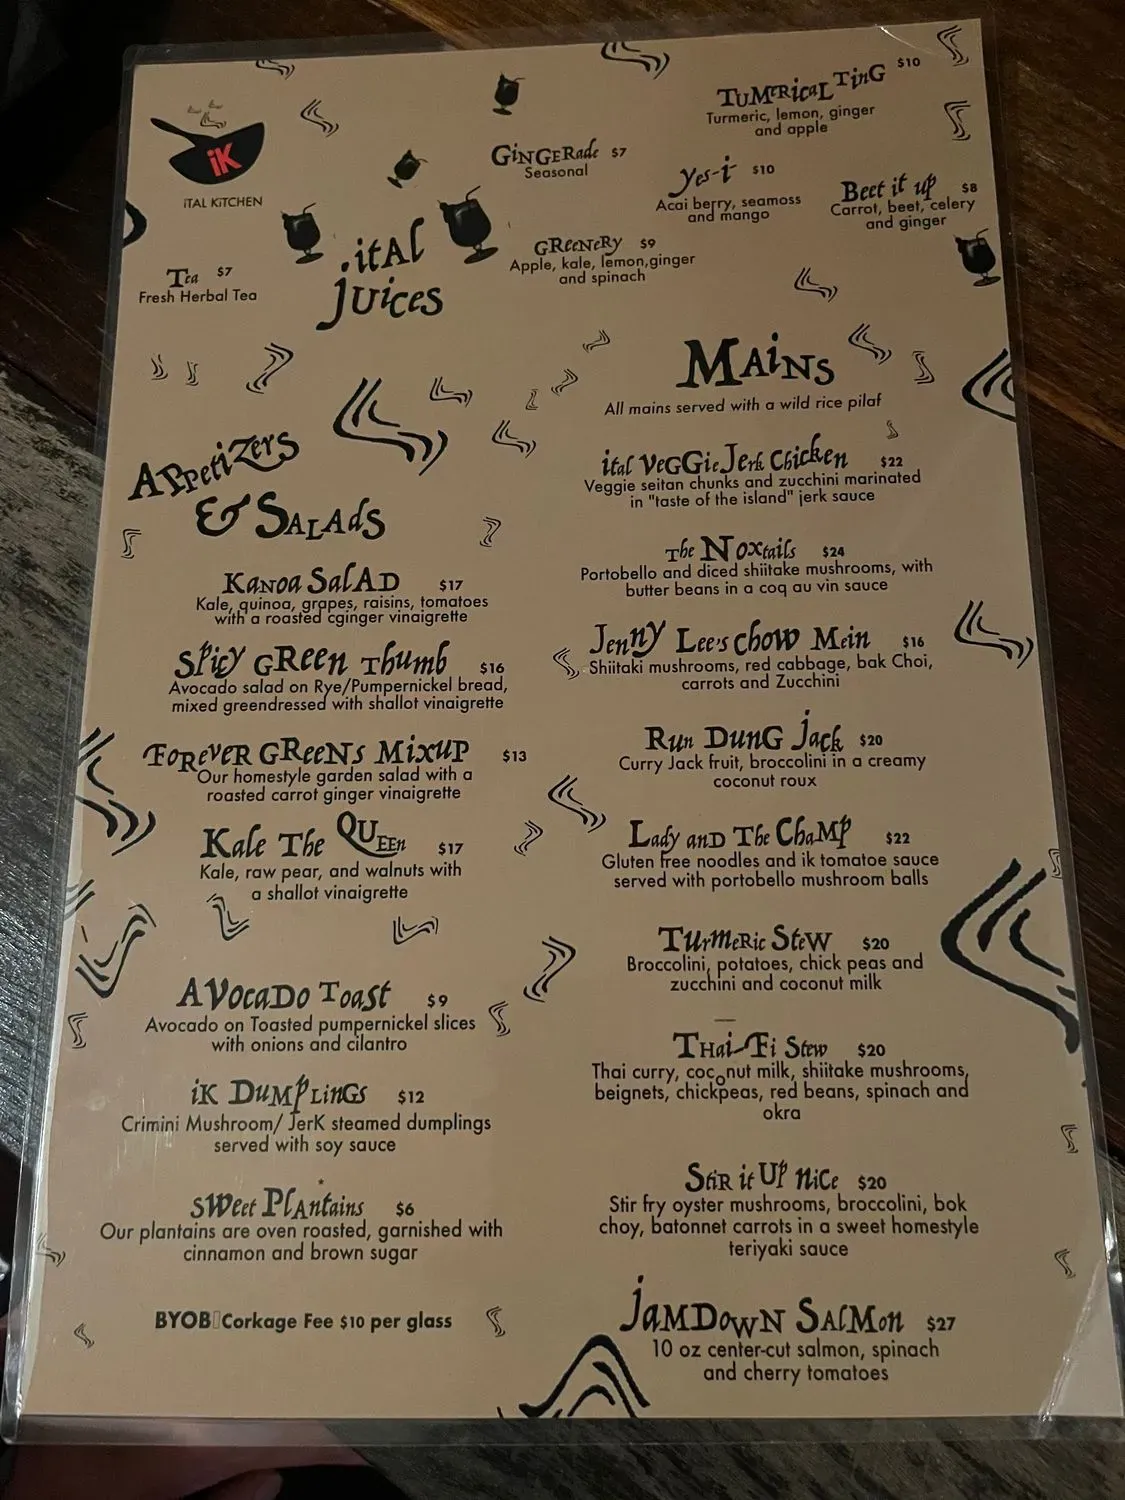 iK
iTAL KiTCHEN
Tea $7
Fresh Herbal Tea
.itAl
Juices
GiNGERade $7
Seasonal
GReeNeRy $9
Apple, kale, lemon,ginger
and spinach
TuMericaL TinG $10
Turmeric, lemon, ginger
and apple
Yes-i- $10
Acai berry, seamoss
and mango
Beet it up $8
Carrot, beet, celery
and ginger
Appetizers
& SALAdS
KaNoa SalAD $17
Kale, quinoa, grapes, raisins, tomatoes
with a roasted cginger vinaigrette
Spicy GReen Thumb $16
Avocado salad on Rye/Pumpernickel bread,
mixed greendressed with shallot vinaigrette
ForeveR GReeNs MixuP $13
Our homestyle garden salad with a
roasted carrot ginger vinaigrette
Kale The QUEEn $17
Kale, raw pear, and walnuts with
a shallot vinaigrette
AVocaDo Toast $9
Avocado on Toasted pumpernickel slices
with onions and cilantro
iK DuMpLinGs $12
Crimini Mushroom/ JerK steamed dumplings
served with soy sauce
sWeet PlAntains $6
Our plantains are oven roasted, garnished with
cinnamon and brown sugar
BYOB▯Corkage Fee $10 per glass
MAiNS
All mains served with a wild rice pilaf
ital VeGGie Jerk Chicken $22
Veggie seitan chunks and zucchini marinated
in "taste of the island" jerk sauce
The Noxtails $24
Portobello and diced shiitake mushrooms, with
butter beans in a coq au vin sauce
Jenny Lee's chow Mein $16
Shiitaki mushrooms, red cabbage, bak Choi,
carrots and Zucchini
Run DunG Jack $20
Curry Jack fruit, broccolini in a creamy
coconut roux
Lady anD The ChaMp $22
Gluten free noodles and ik tomatoe sauce
served with portobello mushroom balls
TurmeRic SteW $20
Broccolini, potatoes, chick peas and
zucchini and coconut milk
THai-Fi Stew $20
Thai curry, coconut milk, shiitake mushrooms,
beignets, chickpeas, red beans, spinach and
okra
StiR it UP niCe $20
Stir fry oyster mushrooms, broccolini, bok
choy, batonnet carrots in a sweet homestyle
teriyaki sauce
JaMDoWN SAlMon $27
10 oz center-cut salmon, spinach
and cherry tomatoes